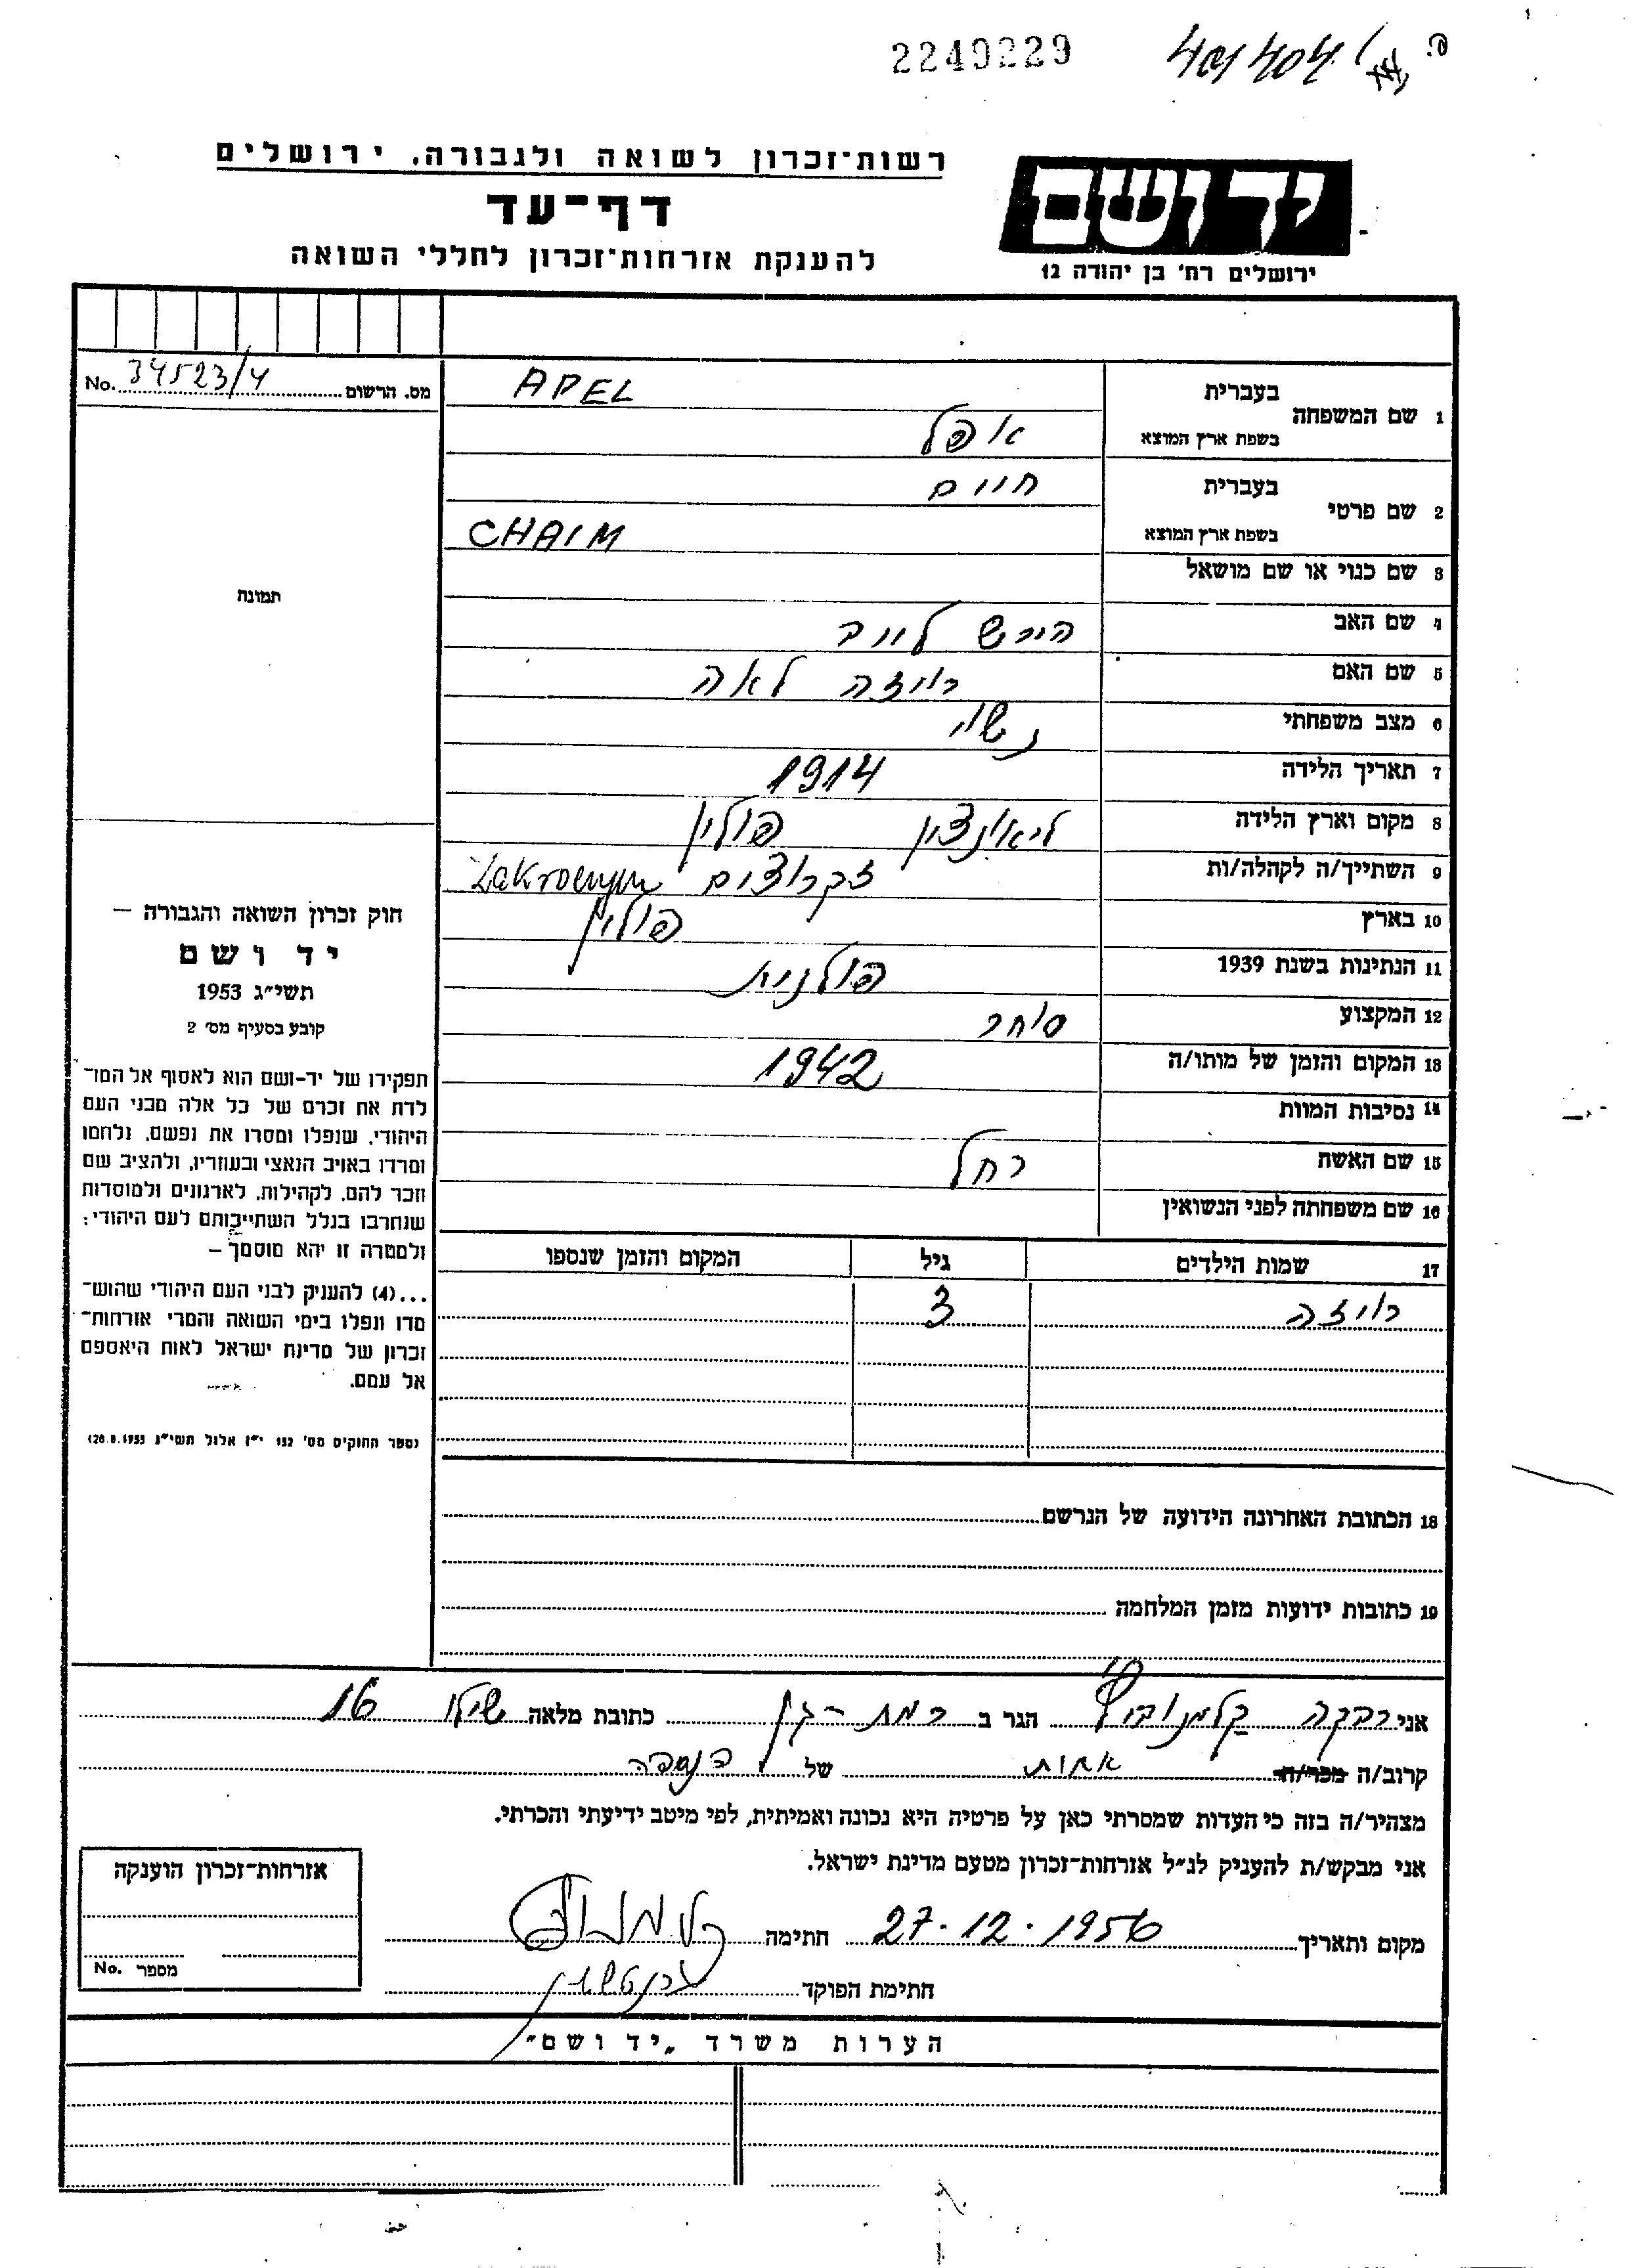 2249229
רשות־זכרון לשואה ולגבורה, ירושלים
דף־עד
להענקת אזרחות־זכרון לחללי השואה
יד ושם
ירושלים רח' בן יהודה 12
מס. הרשום 34523/4 No.
1 שם המשפחה בעברית APEL
בשפת ארץ המוצא אפל
2 שם פרטי בעברית חיים
בשפת ארץ המוצא CHAIM
3 שם כנוי או שם מושאל
4 שם האב הירש לייב
5 שם האם רויזה לאה
6 מצב משפחתי נשוי
7 תאריך הלידה 1914
8 מקום וארץ הלידה פולין
9 השתייך/ה לקהלה/ות זקרוצים
10 בארץ פולין
11 הנתינות בשנת 1939 פולנית
12 המקצוע סוחר
13 המקום והזמן של מותו/ה 1942
14 נסיבות המוות
15 שם האשה רחל
16 שם משפחתה לפני הנשואין
17 שמות הילדים גיל המקום והזמן שנספו
רויזה 3
18 הכתובת האחרונה הידועה של הנרשם
19 כתובות ידועות מזמן המלחמה
תמונת
חוק זכרון השואה והגבורה —
יד ושם
תשי"ג 1953
קובע בסעיף מס' 2
תפקידו של יד-ושם הוא לאסוף אל המו־
לדת את זכרם של כל אלה מבני העם
היהודי, שנפלו ומסרו את נפשם, נלחמו
ומרדו באויב הנאצי ובעוזריו, ולהציב שם
וזכר להם, לקהילות, לארגונים ולמוסדות
שנחרבו בגלל השתייכותם לעם היהודי;
ולמטרה זו יהא מוסמך —
...(4) להעניק לבני העם היהודי שהוש־
מדו ונפלו בימי השואה והמרי אזרחות־
זכרון של מדינת ישראל לאות היאספם
אל עמם.
(ספר החוקים מס' 132 י"ז אלול תשי"ג 28.8.1953)
אני רבקה קלמנוביץ הגר ב רמת-גן כתובת מלאה שילו 16
קרוב/ה מכר/ה אחות של הנספה
מצהיר/ה בזה כי העדות שמסרתי כאן על פרטיה היא נכונה ואמיתית, לפי מיטב ידיעתי והכרתי.
אני מבקש/ת להעניק לנ"ל אזרחות־זכרון מטעם מדינת ישראל.
מקום ותאריך 27.12.1956 חתימה
חתימת הפוקד
אזרחות־זכרון הוענקה
מספר No.
הערות משרד „יד ושם"